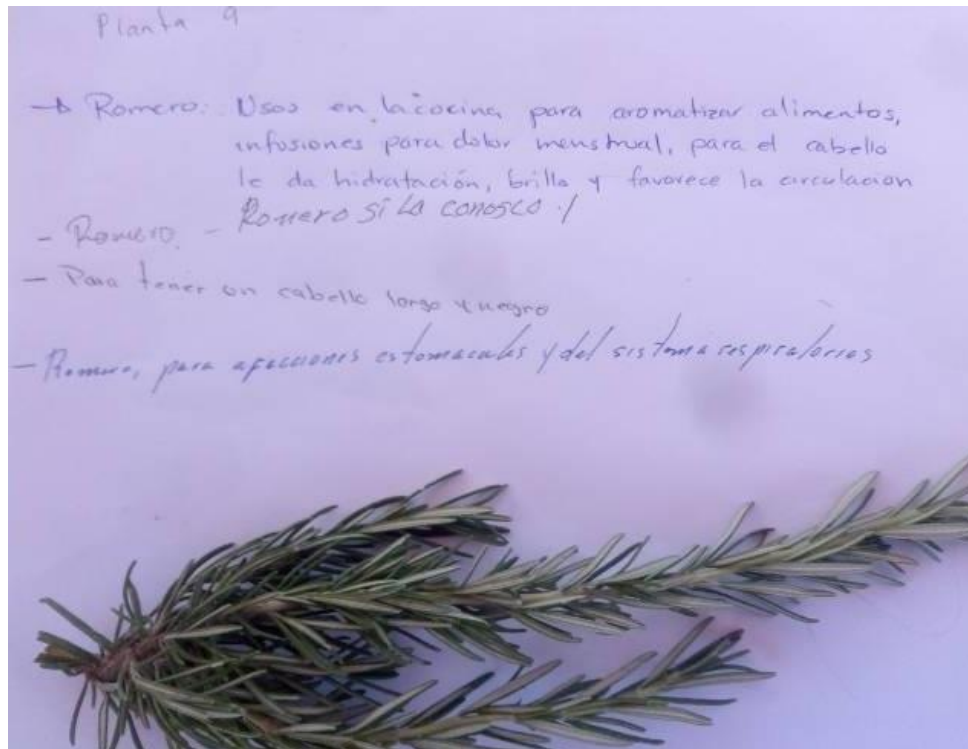 Planta 9
→ Romero: Usos en la cocina para aromatizar alimentos,
infusiones para dolor menstrual, para el cabello
le da hidratación, brillo y favorece la circulación
Romero si La conosco ./
- Romero. -
- Para tener un cabello largo y negro
- Romero, para afecciones estomacales y del sistema respiratorios